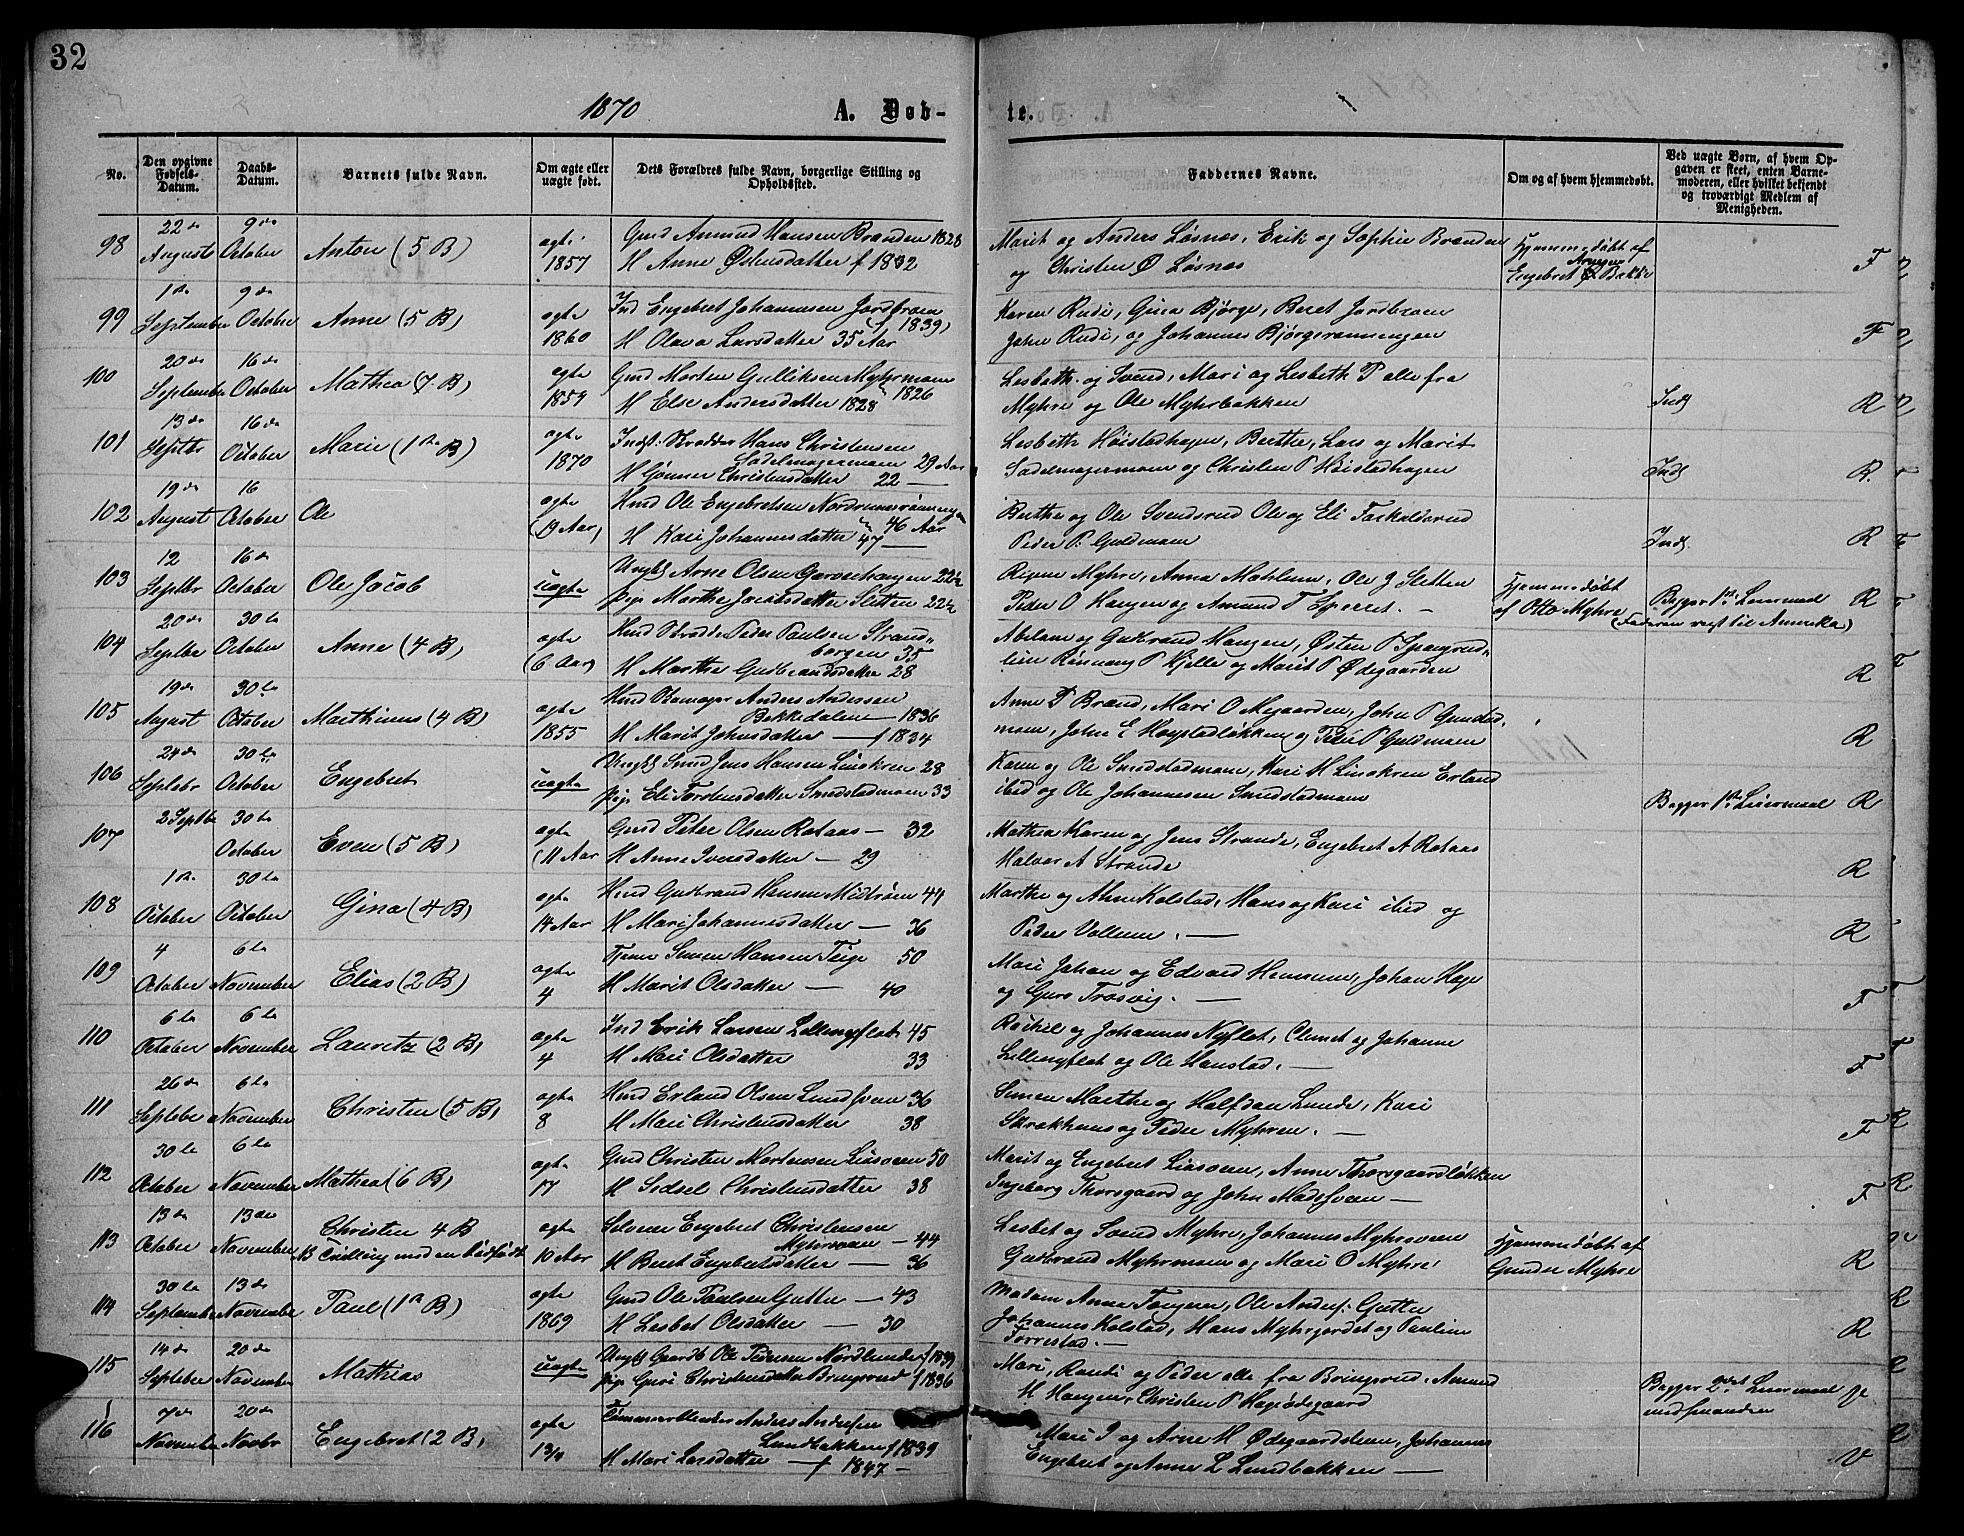 32
1870 A. Døb-
te.
No.
Den opgivne Fødsels-Datum.
Daabs-Datum.
Barnets fulde Navn.
Om ægte eller uægte født.
Dets Forældres fulde Navn, borgerlige Stilling og Opholdssted.
Faddernes Navne.
Om og af hvem hjemmedøbt.
Ved uægte Børn, af hvem Opgaven er skeet, enten Barnemoderen, eller hvilket bekjendt og troværdigt Medlem af Menigheden.
98 22de August 9de October Anton (5 B) ægte 1857 Gmd Amund Hansen Branden 1828
H Anne Østensdatter f 1832
Marit og Anders Løsnes, Erik og Sophie Branden
og Christen Ø Løsnes
Hjemmedøbt af
Engebret Bakke F
99 1ste September 9de October Anne (5 B) ægte 1860 Ind Engebret Johannesen Jordbroen (f 1839)
H Olava Larsdatter 35 Aar
Karen Rudi, Gina Bjørge, Beret Jordbroen
John Rudi, og Johannes Bjørgerønningen F
100 20de September 16de October Mathea (7 B) ægte 1854 Gmd Morten Gulliksen Myhrmoen 1826
H Else Andersdatter 1828
Lesbeth og Svend, Mari og Lesbeth P alle fra
Myhre og Ole Myhrbakken Inds R
101 13de Septbr 16de October Marie (1ste B) ægte 1870 Inds. Skrædder Hans Christensen
Sadelmagermoen 29 Aar
H Gønner Christensdatter 22 —
Lesbeth Høistadhagen, Berthe, Lars og Marit
Sadelmagermoen og Christen P Høistadhagen Inds R.
102 19de August 16 October Ole ægte (19 Aar) Hmd Ole Engebretsen Nordrumsrønningen 46 Aar
H Kari Johannesdatter 47 —
Berthe og Ole Svendsrud Ole og Eli
Peder P. Guldmoen Inds. R
103 12 Septbr 16de October Ole Jacob uægte Ungkl Arne Olsen 22½
Pige Marthe Jacobsdatter Sletten 22½
Myhre, Anna Ole J Sletten
Peder O Haugen og Amund T Sperret. —
Hjemmedøbt
af Otto Myhre
Begges 1ste Leiermaal R
(Faderen reist til Amerika)
104 20de Septbr 30te October Anne (4 B) ægte (6 Aar) Hmd Skrædder Peder Paulsen Strand-
borgen 35
H Marthe Gudbrandsdatter 28
og Gudbrand Haugen, Østen P
Rønnaug P Kjelle og Marit P Ødegaarden R
105 19de August 30te October Marthinus (4 B) ægte 1855 Hmd Skomager Anders Andersen
Bekkedalen — 1836
H Marit Johnsdatter — f 1834
Anne P Brænd, Mari O Megaarden, John P
moen, John E Høystadløkken og Peder P Guldmoen R
106 24de Septebr 30te October Engebret uægte Ungkl Smed Jens Hansen Linskren 28
Pige Eli Torstensdatter Smedstadmoen 33
Karen og Ole Smedstadmoen, Kari H Linskren Erland
ibid og Ole Johannesen Smedstadmoen
Begges 1ste Leiermaal R
107 2 Septbr 30te October Even (5 B) ægte (11 Aar) Gmd Peter Olsen Rotaas — 32
H Anne Iversdatter — 29
Mathea Karen og Jens Strande, Engebret A Rotaas
Halvor A Strande R
108 1ste October 30te October Gina (4 B) ægte 14 Aar Hmd Gudbrand Hansen Midtrøen 49
H Mari Johannesdatter — 36
Marthe og Ahne Kolstad, Hans og Kari ibid og
Peder Vollum. — R
109 4 October 6te November Elias (2 B) ægte 4 Tjener Simen Hansen Teige 50
H Marit Olsdatter — 40
Mari Johan og Edvard Hemmum, Johan Hage
og Guro Trosvig. — F
110 6te October 6te November Lauritz (2 B) ægte 4 Ind Erik Larsen Lillenyflot 45
H Mari Olsdatter 33
Rachel og Johannes Nyflot, Clemet og Johanne
Lillenyflot og Ole Hanstad. — F
111 26de Septebr 6te November Christen (5 B) ægte 8 Hmd Erland Olsen Lundsveen 36
H Mari Christensdatter 38
Simen Marthe og Halfdan Lunde, Kari
og Peder Myhren. — F
112 30te October 6te November Mathea (6 B) ægte 17 Gmd Christen Mortensen Liesveen 50
H Sidsel Christensdatter 38
Marit og Engebret Liesveen, Anne Thorsgaardsløkken
Ingeborg Thorsgaard og John Madssveen — F
113 13de October 13de November Christen 4 B
NB Tvilling med en dødfødt ægte 10 Aar Selveier Engebret Christensen
Myhrsveen — 44
H Beret Engebretsdatter — 36
Lesbet og Svend Myhre, Johannes Myhrsveen
Gudbrand Myhrmoen og Mari O Myhre
Hjemmedøbt af
Gunder Myhre R
114 30te September 13de November Paul (1ste B) ægte 1869 Gmd Ole Paulsen Gutter — 43
H Lesbet Olsdatter — 30
Madam Anne Ole Anders. Gutter
Johannes Kolstad, Hans Myhrjordet og Pauline
Forrestad. — R
115 14de Septebr 20de November Mathias uægte Ungkl Gaardb Ole Pedersen Nordlunde f 1839
Pige Guri Christensdatter Bringsrud f 1836
Mari, Randi og Peder alle fra Bringsrud. Amund
H Haugen, Christen P Hageødegaard
Begges 2det Leiermaal
116 7de November 20de Novbr Engebret (2 B) ægte 13/4 Tømmerblinker Anders Andersen
Lundbakken f 1839
H Mari Larsdatter — f 1847 —
Mari I og Arne H Ødegaardslien, Johannes
Engebret og Anne L Lundbakken — V